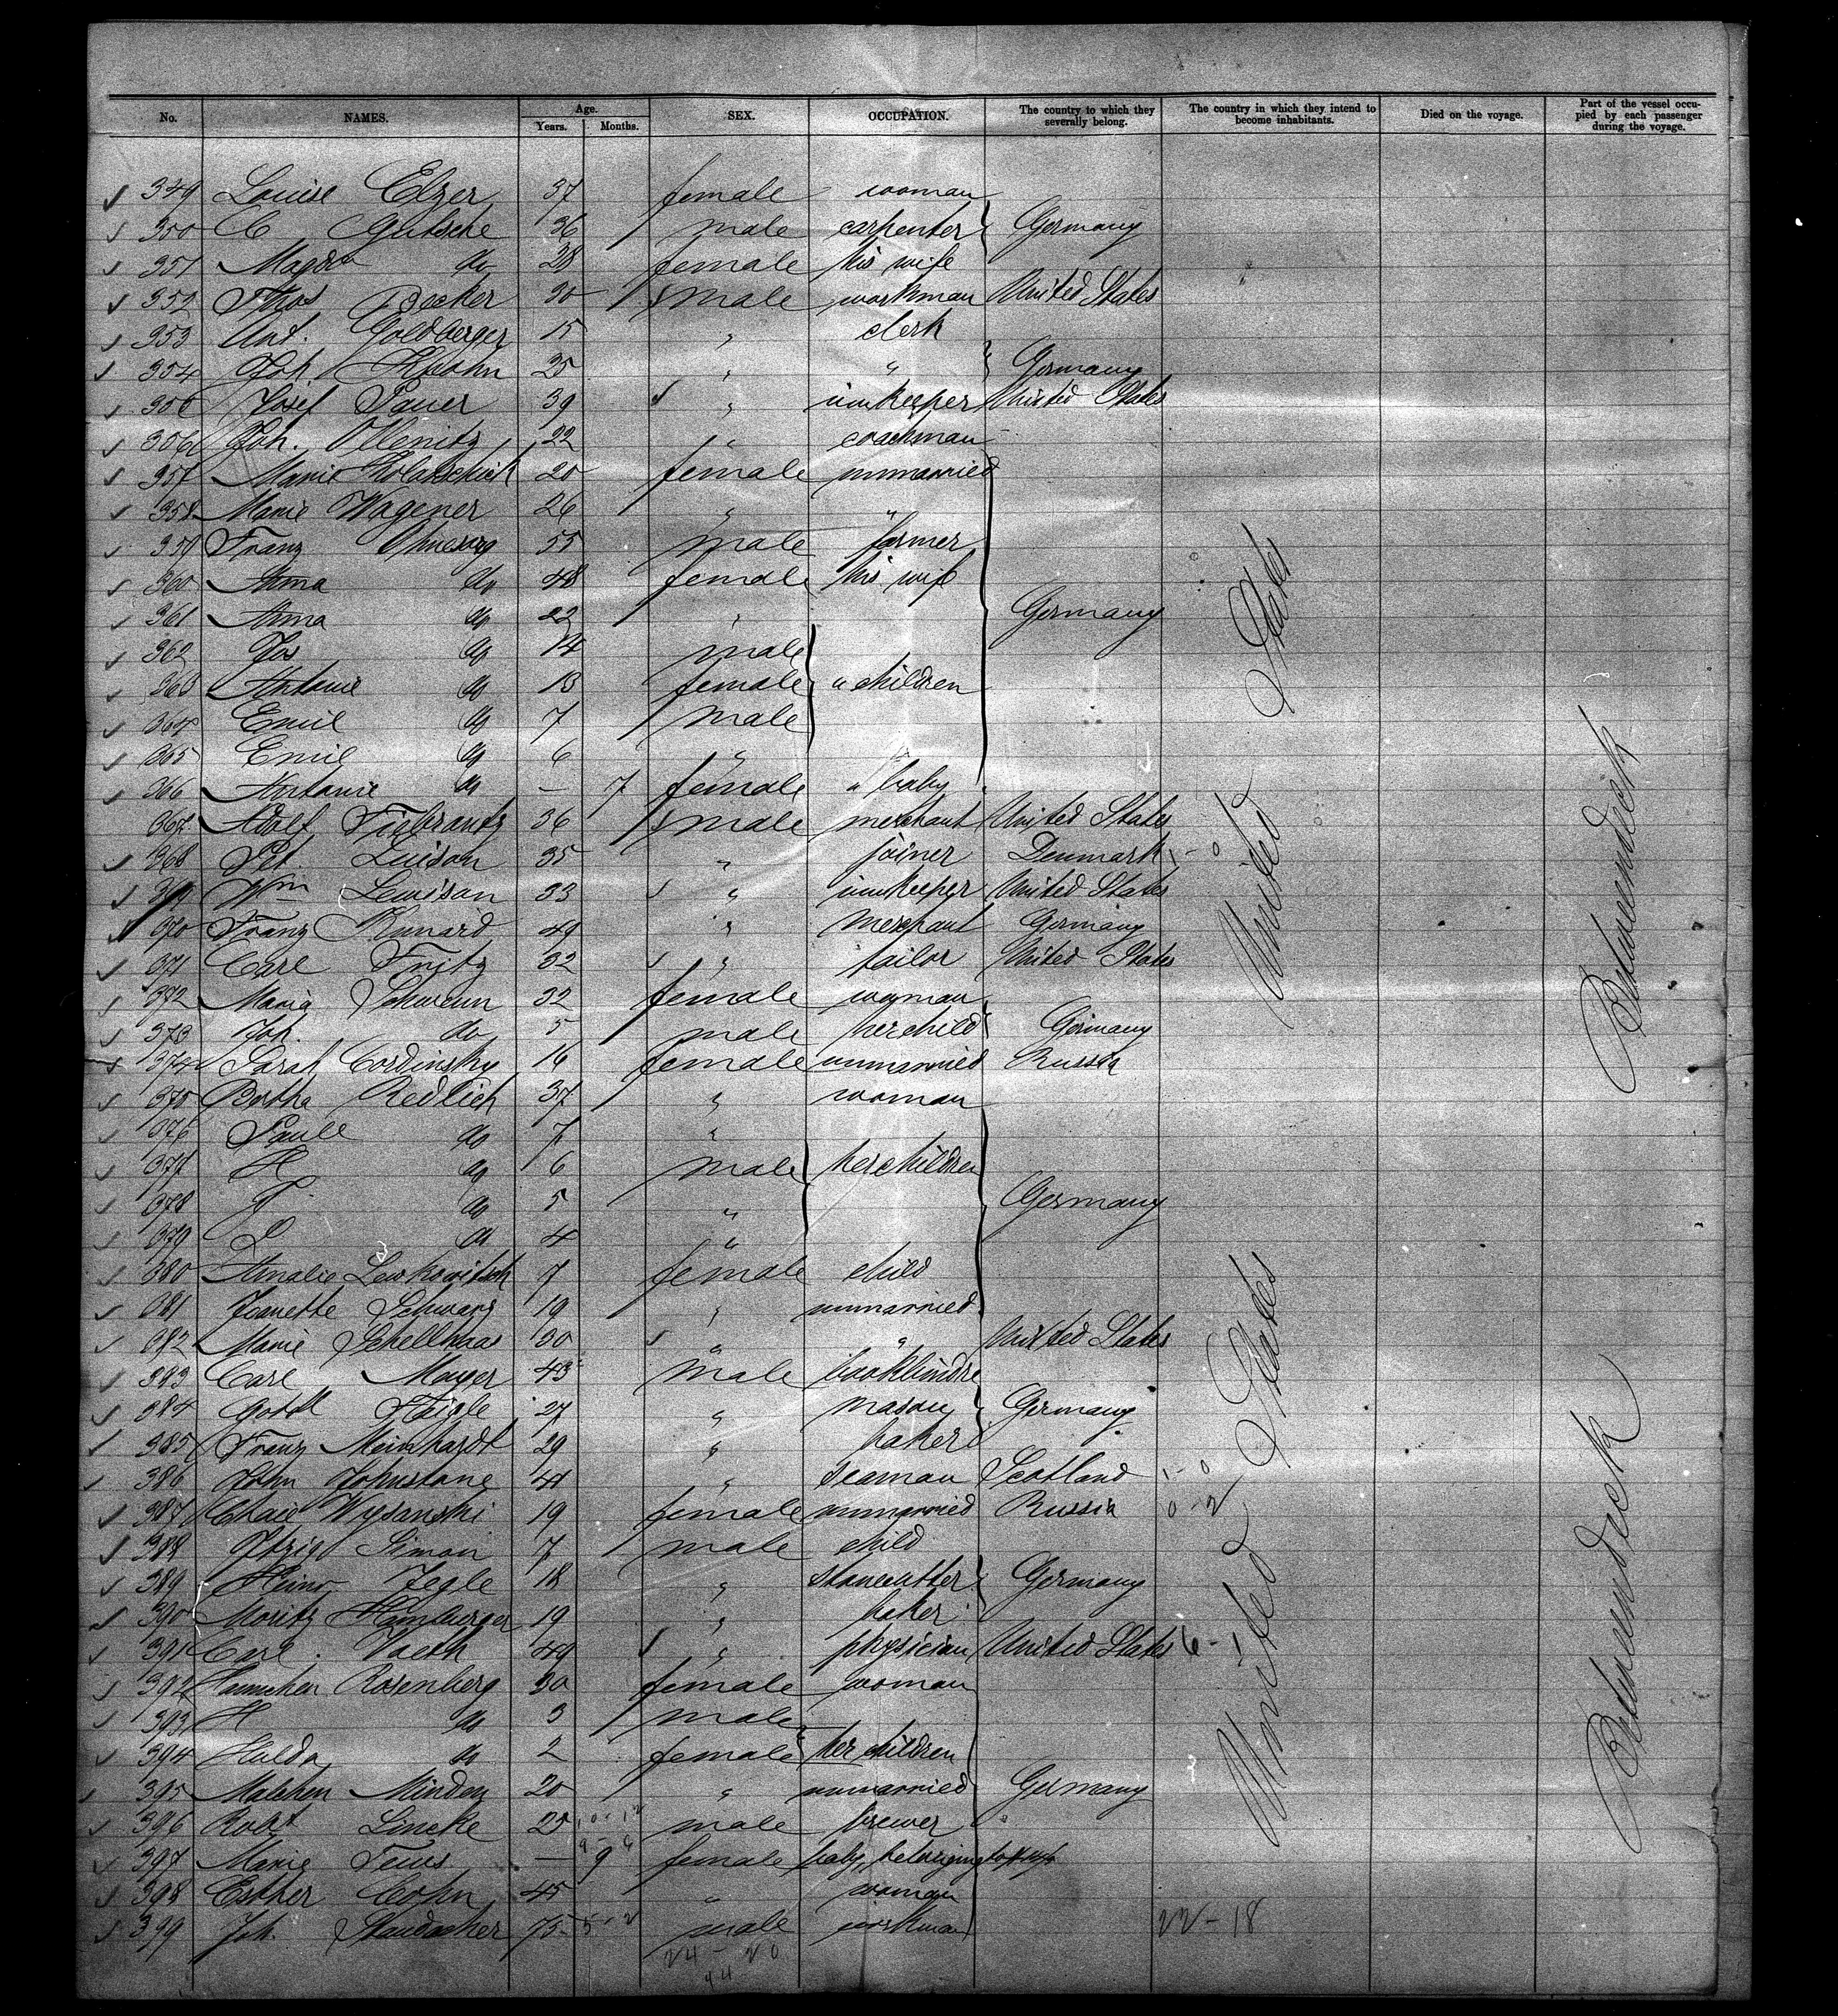 No. NAMES. Age. Years. Months. SEX. OCCUPATION. The country to which they severally belong. The country in which they intend to become inhabitants. Died on the voyage. Part of the vessel occupied by each passenger during the voyage.
349 Louise Elzer 37 female woman
350 C Gutsche 36 male carpenter Germany
351 Magda do 28 female his wife
352 Thos Becker 30 male workman United States
353 Ant. Goldberger 15 " clerk
354 Joh 25 " " Germany
355 Josef Sauer 39 " innkeeper United States
356 Joh. Ollenitz 22 " coachman
357 Marie 20 female unmarried
358 Marie Wagener 26 " "
359 Franz 55 male farmer
360 Anna do 48 female his wife
361 Anna do 22 " Germany
362 Jos do 14 male
363 Antonie do 13 female " children
364 Emil do 7 male
365 Emil do 6 "
366 Antonie do — 7 female " baby
367 Adolf Fiebrantz 36 male merchant United States
368 Pet. Luison 35 " joiner Denmark
369 Wm Lewison 33 " innkeeper United States
370 Franz Kunard 49 " merchant Germany
371 Carl Fritz 32 " tailor United States
372 Maria Schwenn 32 female woman
373 Joh. do 5 male her child Germany
374 Sarah Cordinsky 16 female unmarried Russia
375 Bertha Redlich 37 " woman
376 Paule do 7 "
377 H do 6 male her children
378 do 5 " Germany
379 do 4 "
380 Amalie Lewkowitsch 7 female child
381 Jeanette Schwarz 19 " unmarried
382 Marie Schellhaas 30 " " United States
383 Carl Mayer 43 male bookbindre
384 Gottl Steigle 27 " mason Germany
385 Franz Meinhardt 29 " baker
386 John Johnstone 41 " seaman Scotland
387 Chaie Wysanski 19 female unmarried Russia
388 Itzig Simon 7 male child
389 Heinr Jegle 18 " stonecutter Germany
390 Moritz Hamberger 19 " baker
391 Carl Vaeth 49 " physician United States 6 - 1
392 Hannchen Rosenberg 30 female woman
393 H do 3 male
394 Hulda do 2 female her children
395 Malchen Minden 20 " unmarried Germany
396 Robt Lincke 25 male brewer
397 Marie Tews — 9 female baby, belonging to
398 Esther Cohn 45 " woman
399 Joh. Staudacher 75 male workman
22 - 18
24 - 20
44
United States
United States
Betweendeck
Betweendeck